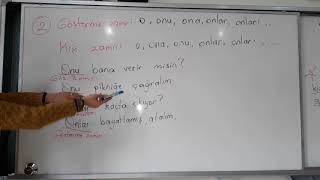 2 Gösterme zamiri O, onu, ona, onlar, onları ...
Kişi zamiri: O, ona, onu, onlar, onları ...
Onu bana verir misin?
Onu pikniğe çağıralım.
kaçta çıkıyor?
Onlar bayatlamış, atalım.